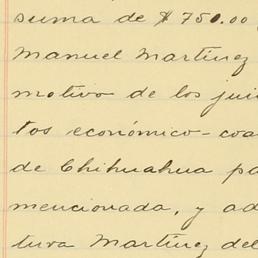 suma de $750.00
Manuel Martínez
motivo de los jui
tos económico-coa
de Chihuahua pa
mencionada, y ad
tura Martínez del